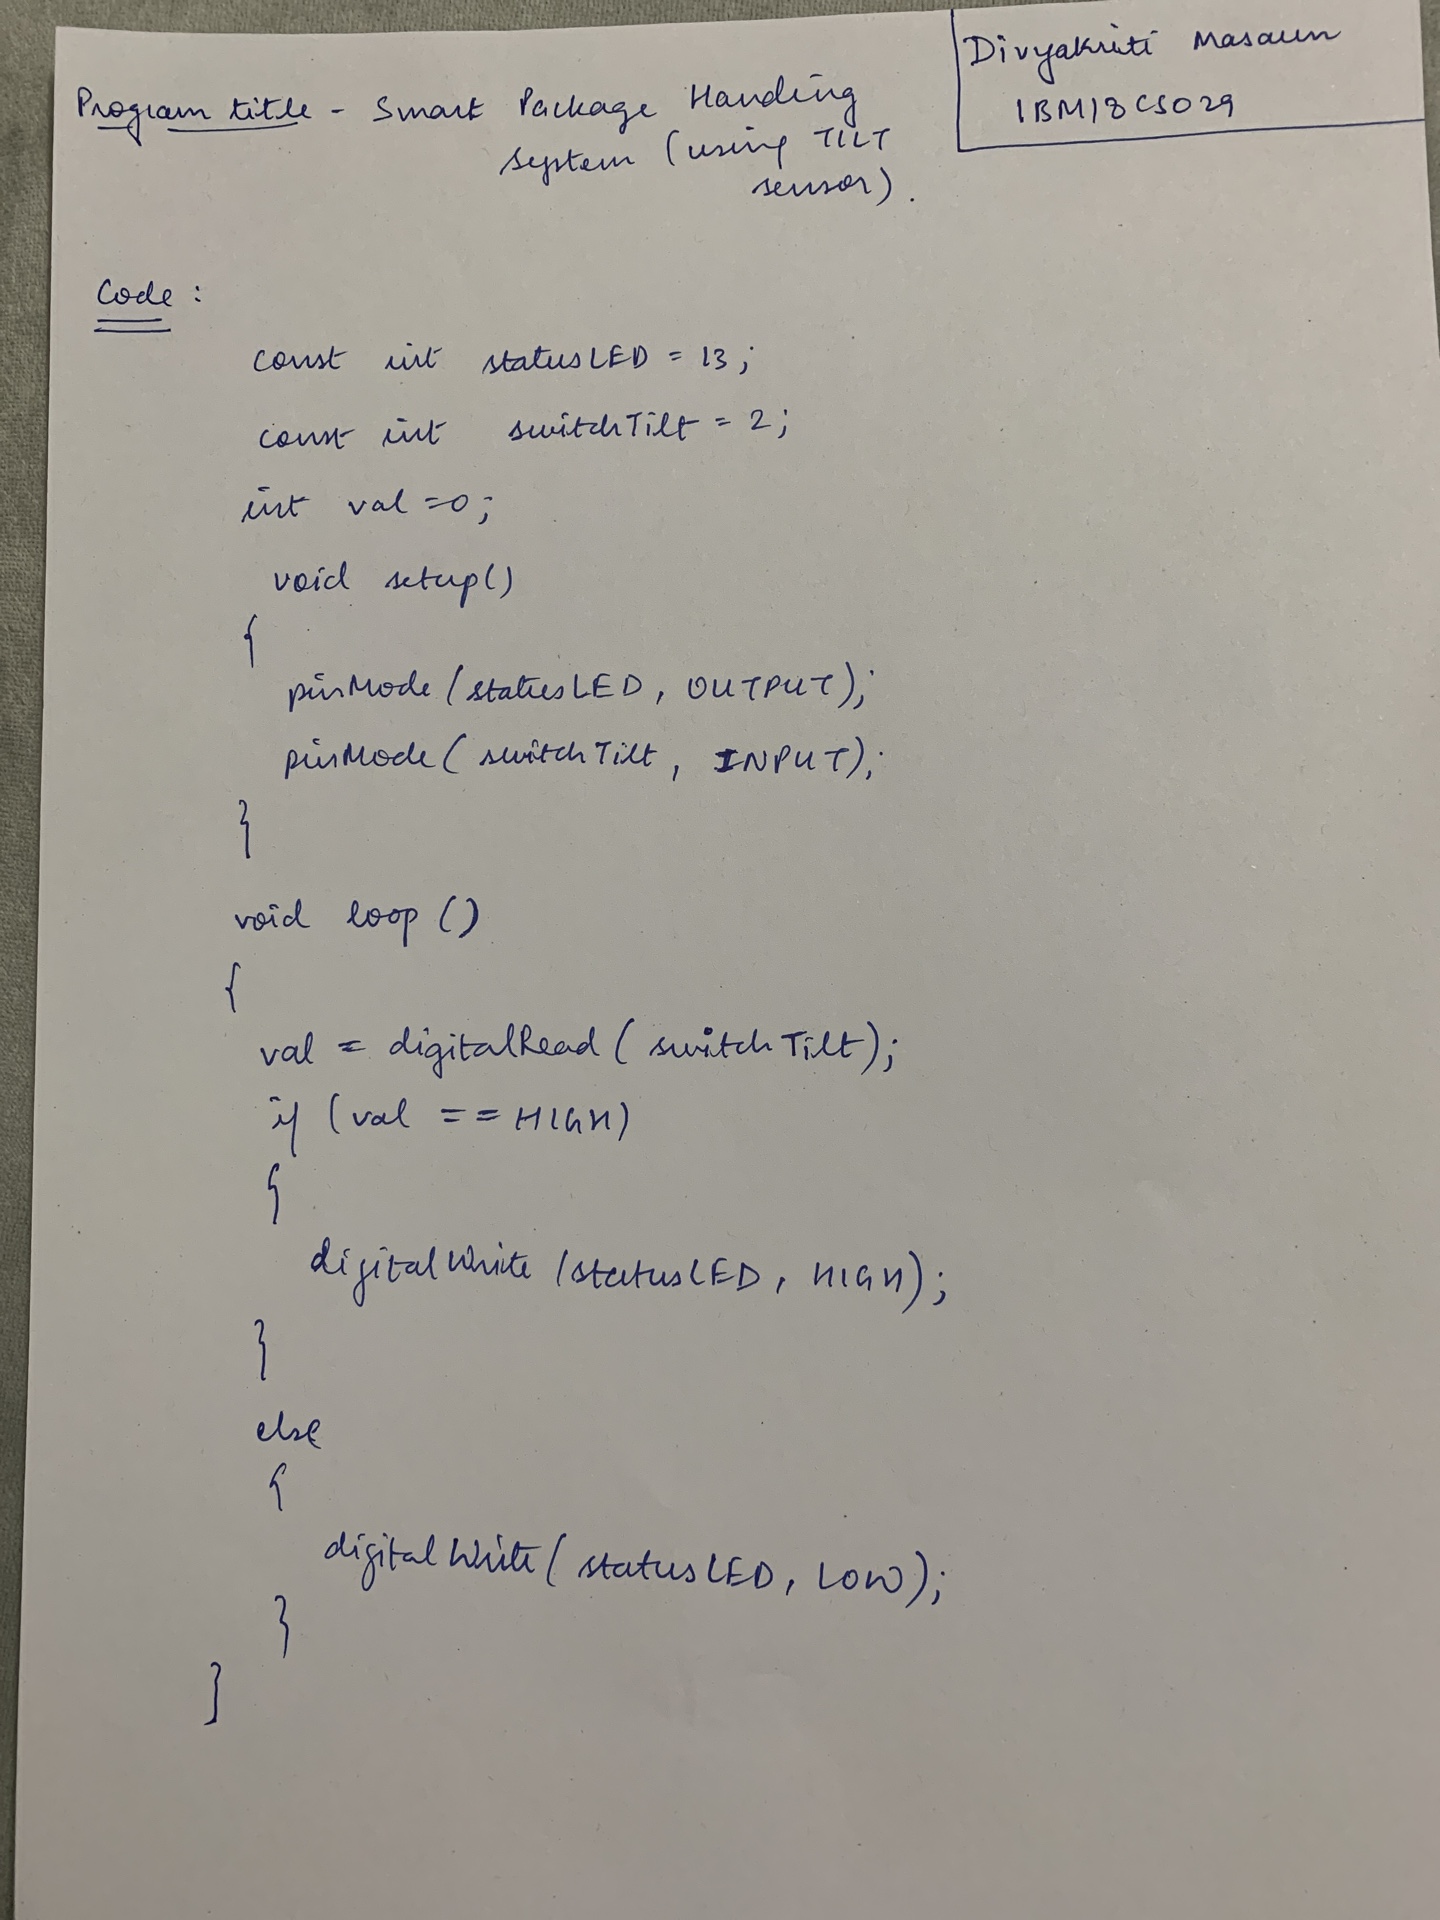 Divyakriti Masaun
1BM18CS029
Program title - Smart Package Handing
system (using TILT
sensor).
Code :
const int statusLED = 13;
const int switchTilt = 2;
int val =0;
void setup()
{
pinMode (statusLED, OUTPUT);
pinMode ( switchTilt, INPUT);
}
void loop ()
{
val = digitalRead ( switchTilt);
if (val == HIGH)
{
digitalWrite (statusLED, HIGH);
}
else
{
digitalWrite ( statusLED, LOW);
}
}